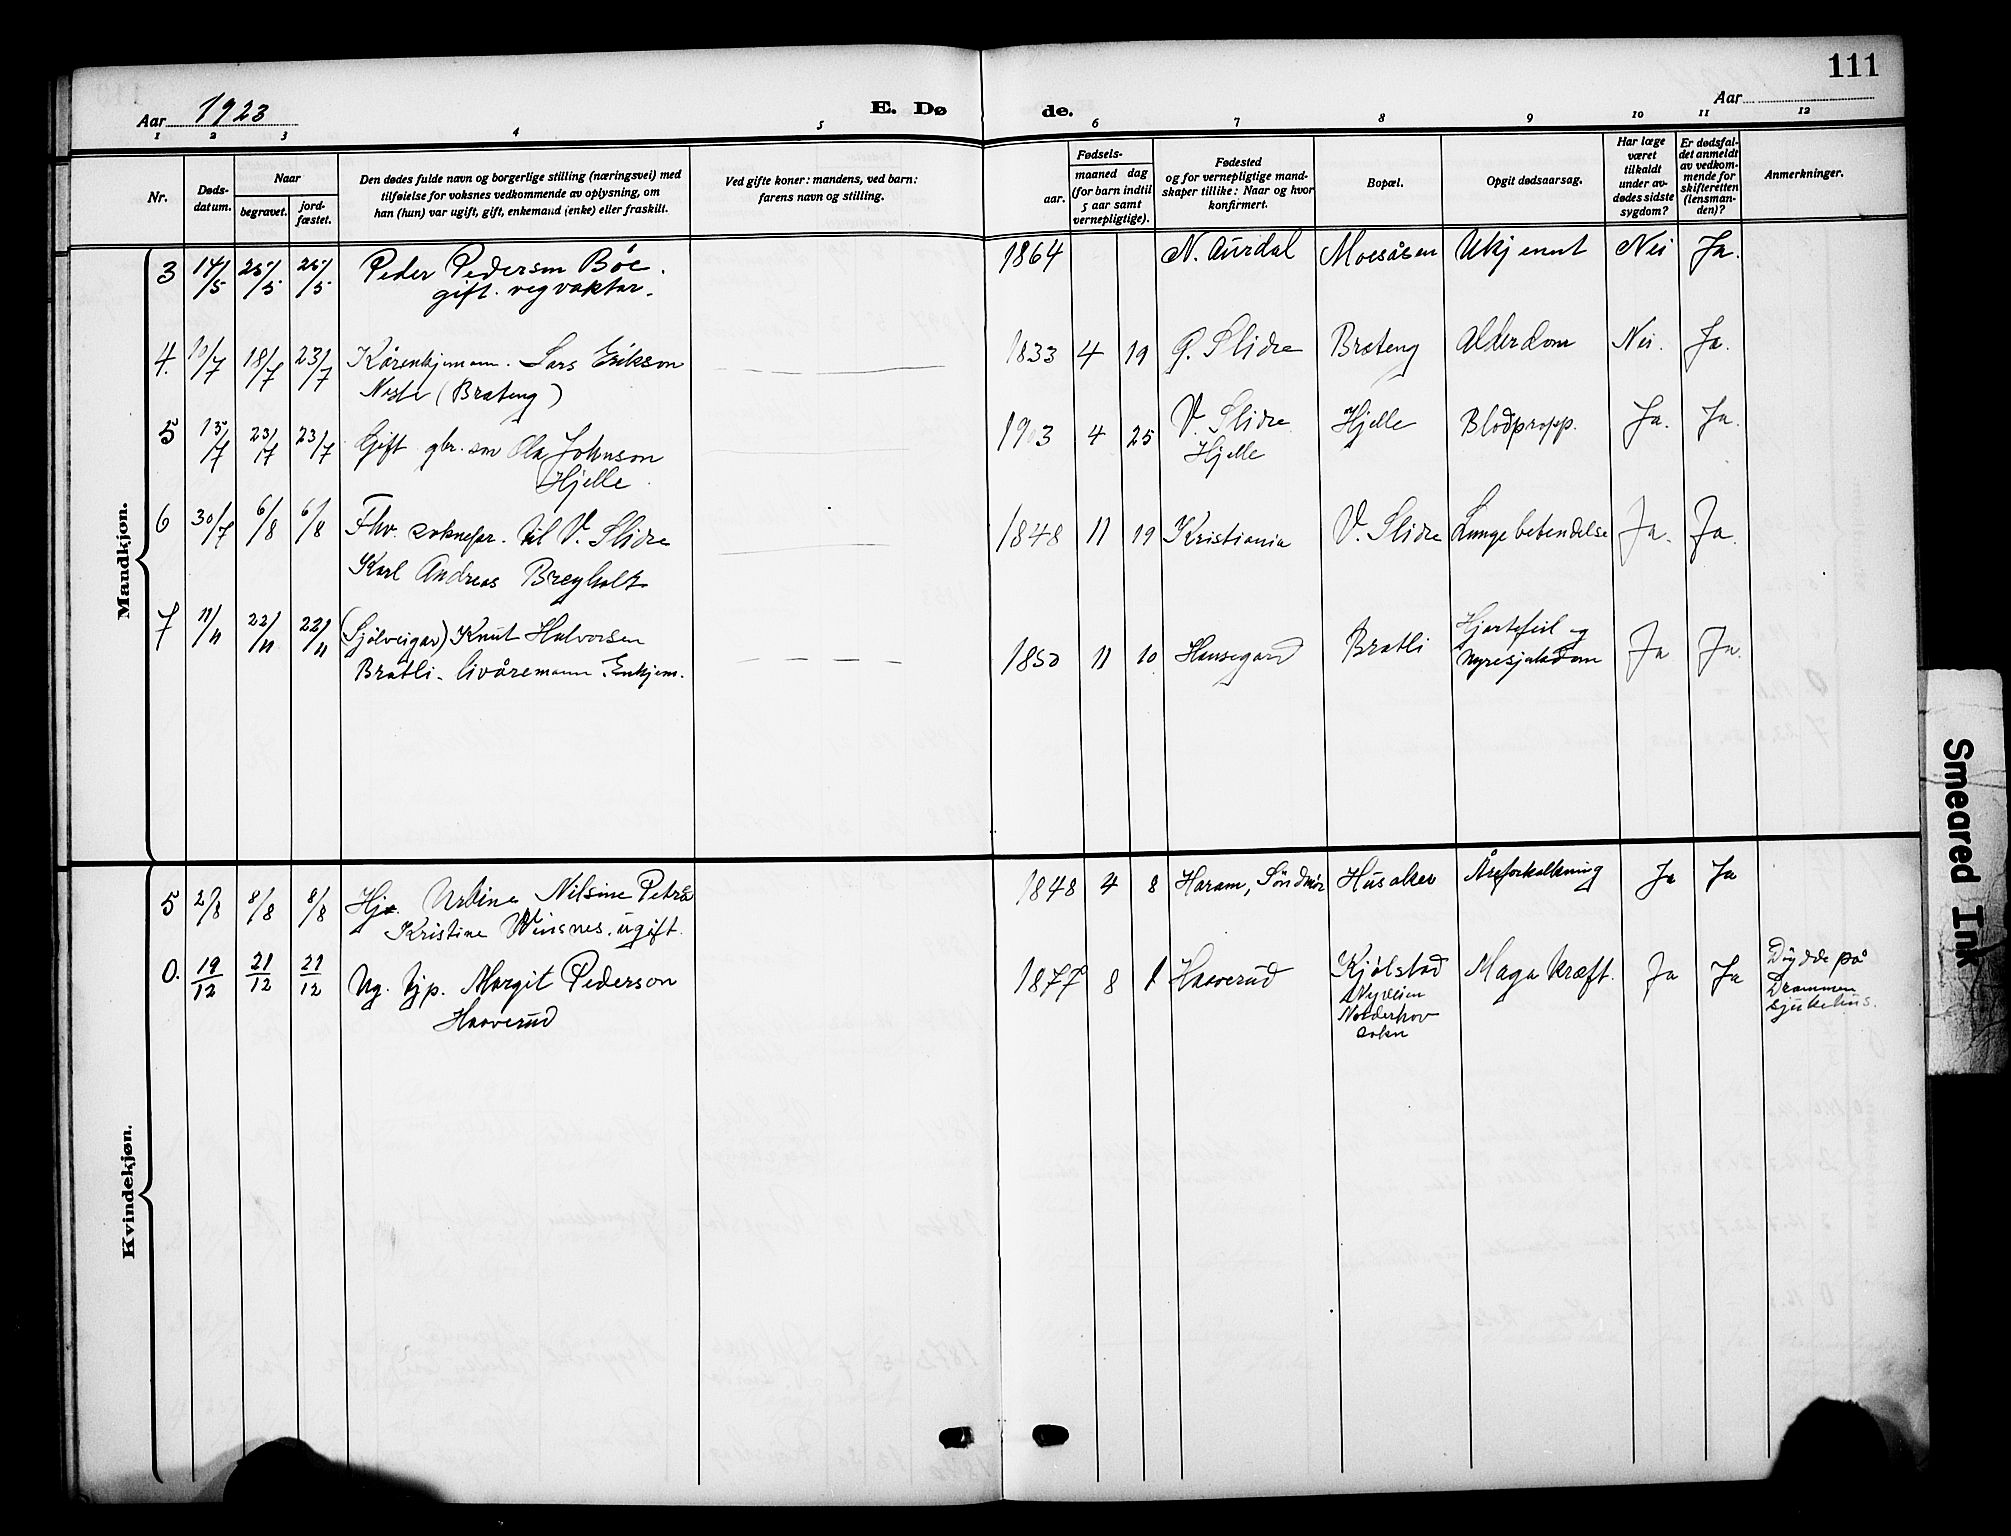 111
Aar 1923
E. Døde.
Aar
1 2 3 4 5 6 7 8 9 10 11 12
Nr.
Døds-
datum.
Naar
begravet.
jord-
fæstet.
Den dødes fulde navn og borgerlige stilling (næringsvei) med
tilføielse for voksnes vedkommende av oplysning, om
han (hun) var ugift, gift, enkemand (enke) eller fraskilt.
Ved gifte koner: mandens, ved barn:
farens navn og stilling.
Fødsels-
aar.
maaned dag
(for barn indtil
5 aar samt
vernepligtige).
Fødested
og for vernepligtige mand-
skaper tillike: Naar og hvor
konfirmert.
Bopæl.
Opgit dødsaarsag.
Har læge
været
tilkaldt
under av-
dødes sidste
sygdom?
Er dødsfal-
det anmeldt
av vedkom-
mende for
skifteretten
(lensman-
den)?
Anmerkninger.
Mandkjøn.
3 14/5 25/5 25/5 Peder Pedersen Bøe. 1864 N. Aurdal Moesåsen Ukjennt Nei Ja.
gift. vegvaktar.
4. 10/7 18/7 23/7 Kårenkjemann. Lars Erikson 1833 4 19 Ø. Slidre Bråteng Alderdom Nei. Ja.
(Bråteng)
5 15/7 23/7 23/7 Gift gbr. son Ola Johnson 1903 4 25 V. Slidre Hjelle Blodpropp. Ja. Ja.
Hjelle. Hjelle
6 30/7 6/8 6/8 Fhv. soknepr. til V. Slidre 1848 11 19 Kristiania V. Slidre Lungebetendelse Ja. Ja.
Karl Andreas
7 11/11 22/11 22/11 (Sjølveigar) Knut Halvorsen 1850 11 10 Hausegard Bråtli Hjartefeil og Ja Ja.
Bråtli. livåremann. Enkjem. nyresjukdom
Kvindekjøn.
5 2/8 8/8 8/8 Nilsine Petra 1848 4 8 Haram, Søndmør Husaker Åreforkalkning Ja Ja
Kristine Winsnes. ugift.
0. 19/12 21/12 21/12 Ug. tjp. Margit Pederson 1877 8 1 Haaverud Kjølstad Magakræft. Ja Ja Døydde på
Haaverud Nyveien Drammen
Norderhov sjukehus.
sokn
Smeared Ink